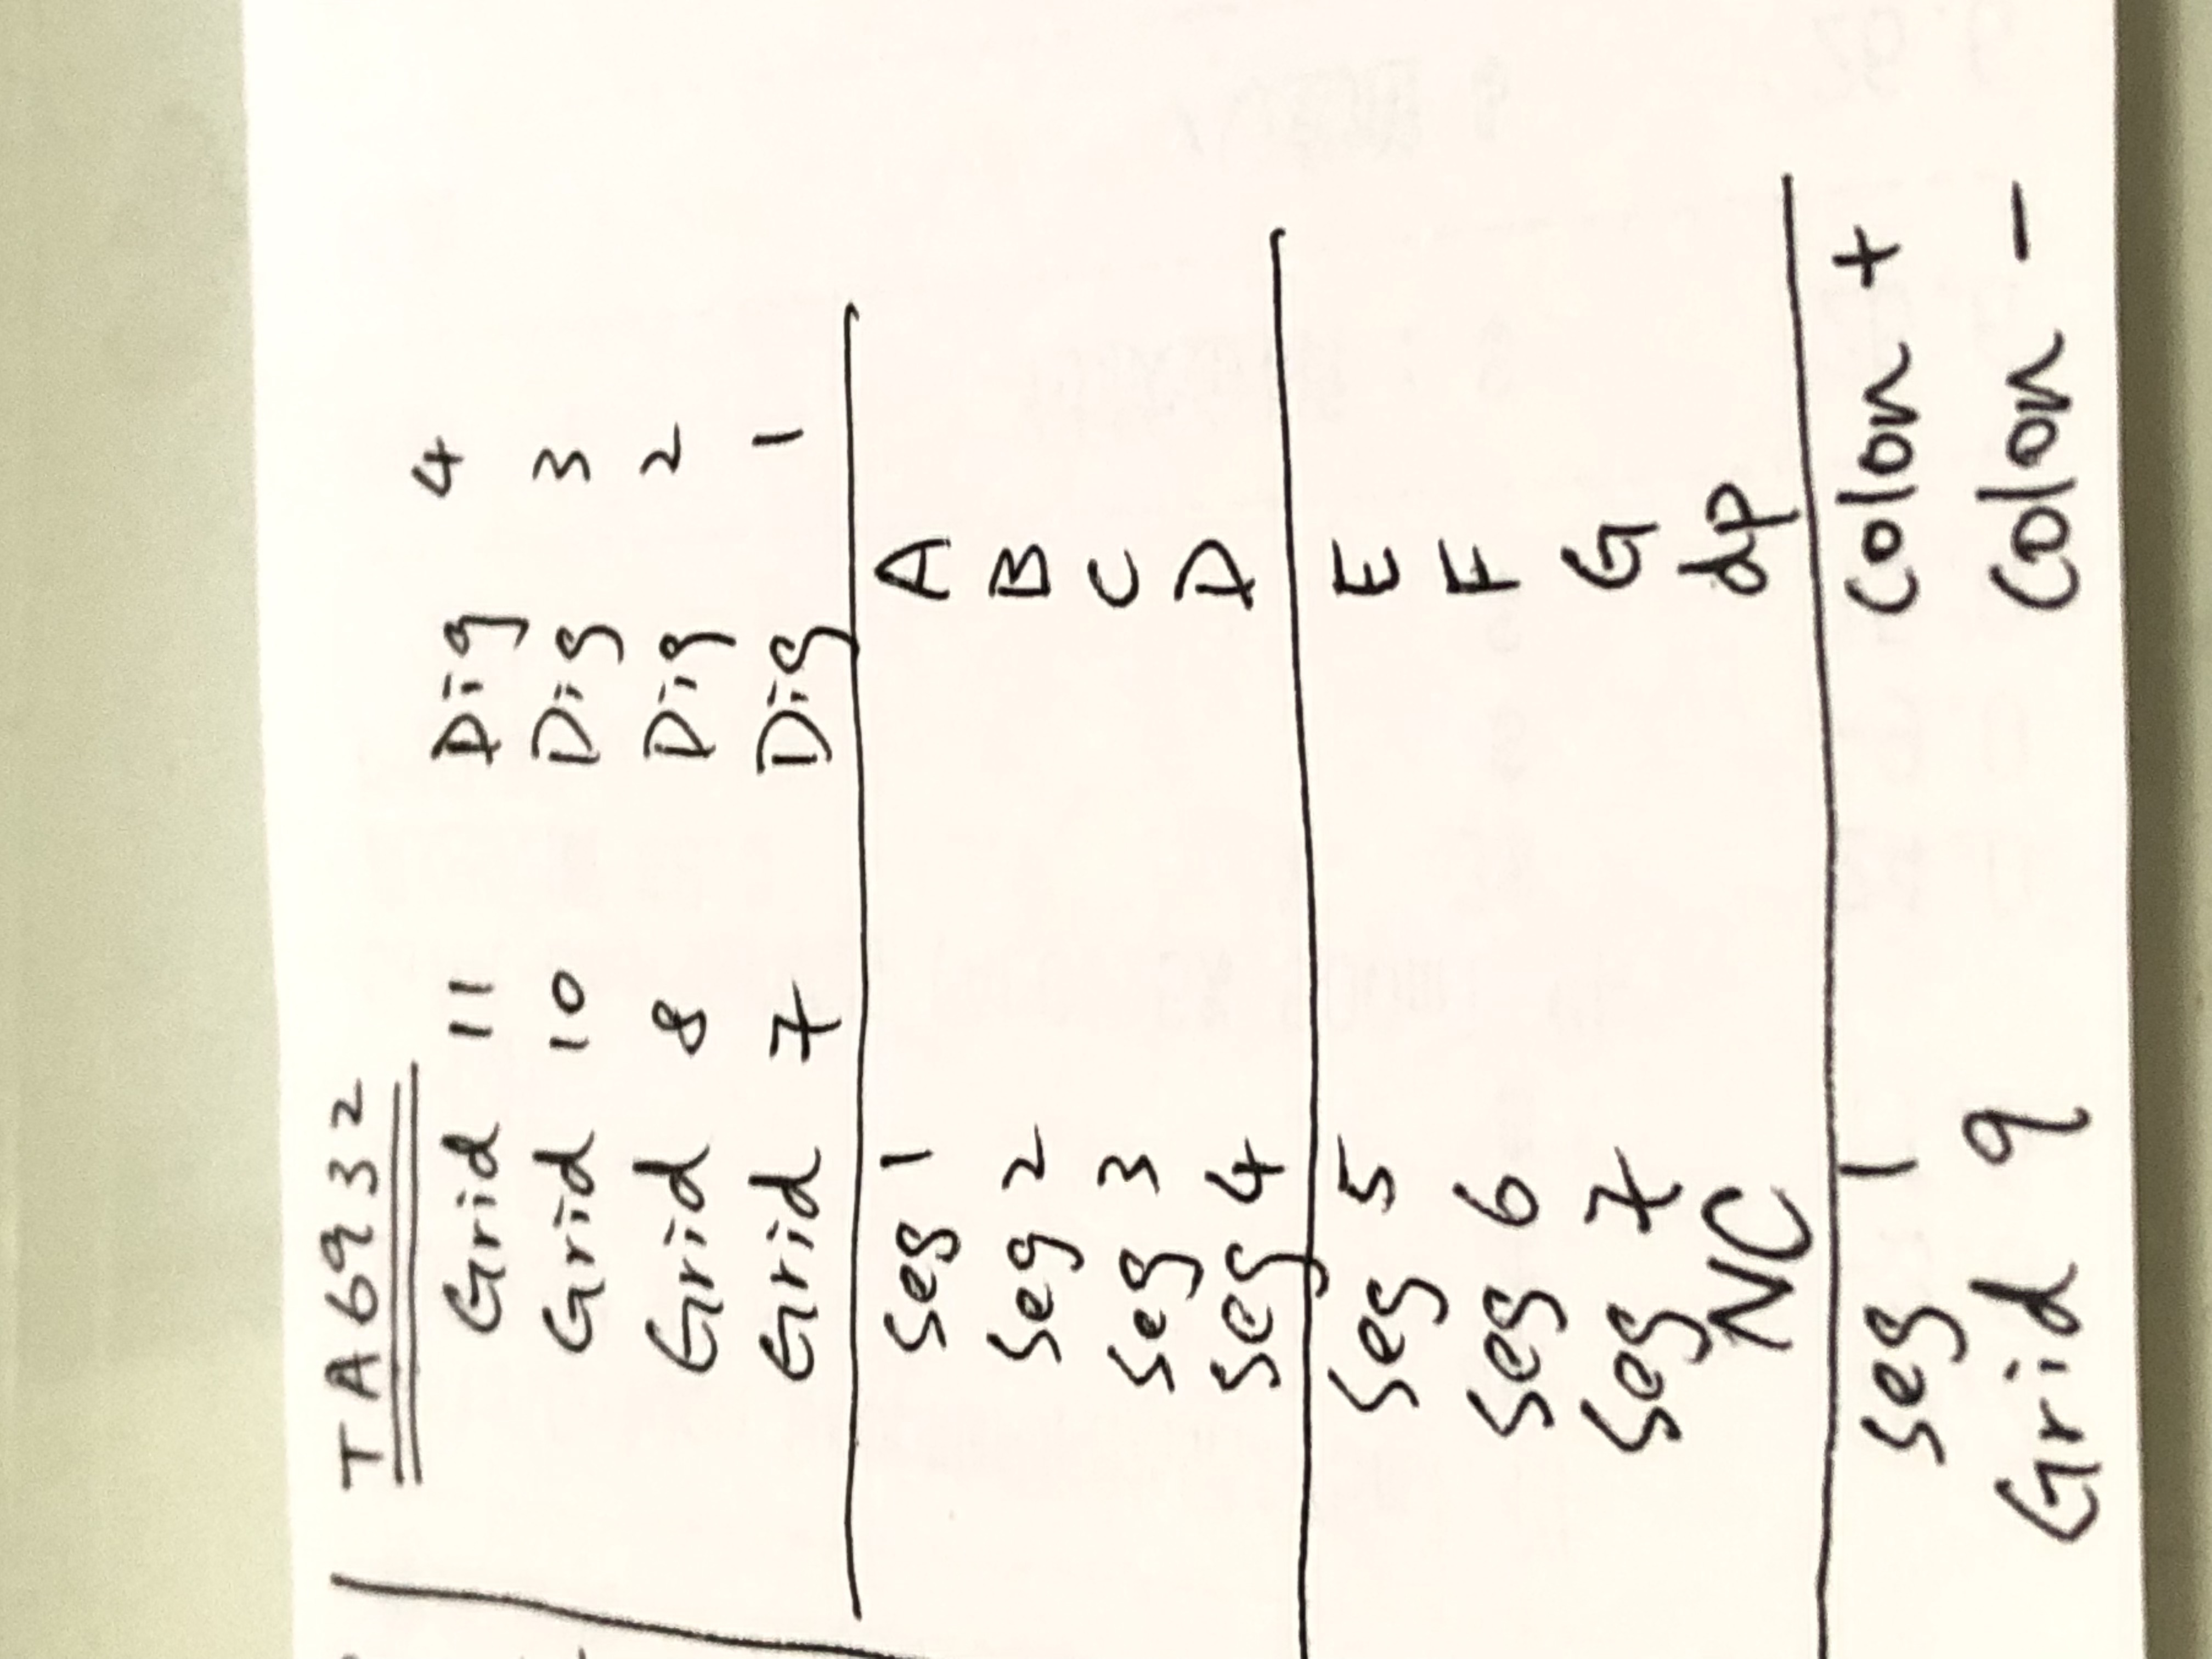 TA6932
Grid 11 Dig 4
Grid 10 Dig 3
Grid 8 Dig 2
Grid 7 Dig 1
Seg 1 A
Seg 2 B
Seg 3 C
Seg 4 D
Seg 5 E
Seg 6 F
Seg 7 G
NC dp
Seg 1 Colon +
Grid 9 Colon -